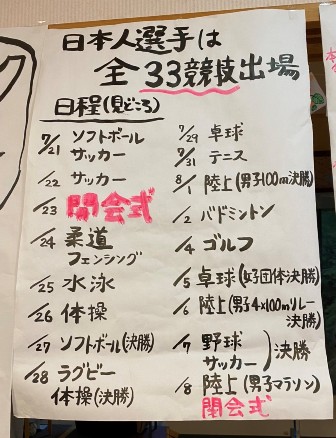 日本人選手は
全33競技出場
日程(見どころ)
7/21 ソフトボール
サッカー
/22 サッカー
/23 開会式
/24 柔道
フェンシング
/25 水泳
/26 体操
/27 ソフトボール(決勝)
/28 ラグビー
体操(決勝)
7/29 卓球
7/31 テニス
8/1 陸上(男子100m決勝)
/2 バドミントン
/4 ゴルフ
/5 卓球(女子団体決勝)
/6 陸上(男子4×100mリレー
決勝)
/7 野球
サッカー)決勝
/8 陸上(男子マラソン)
閉会式